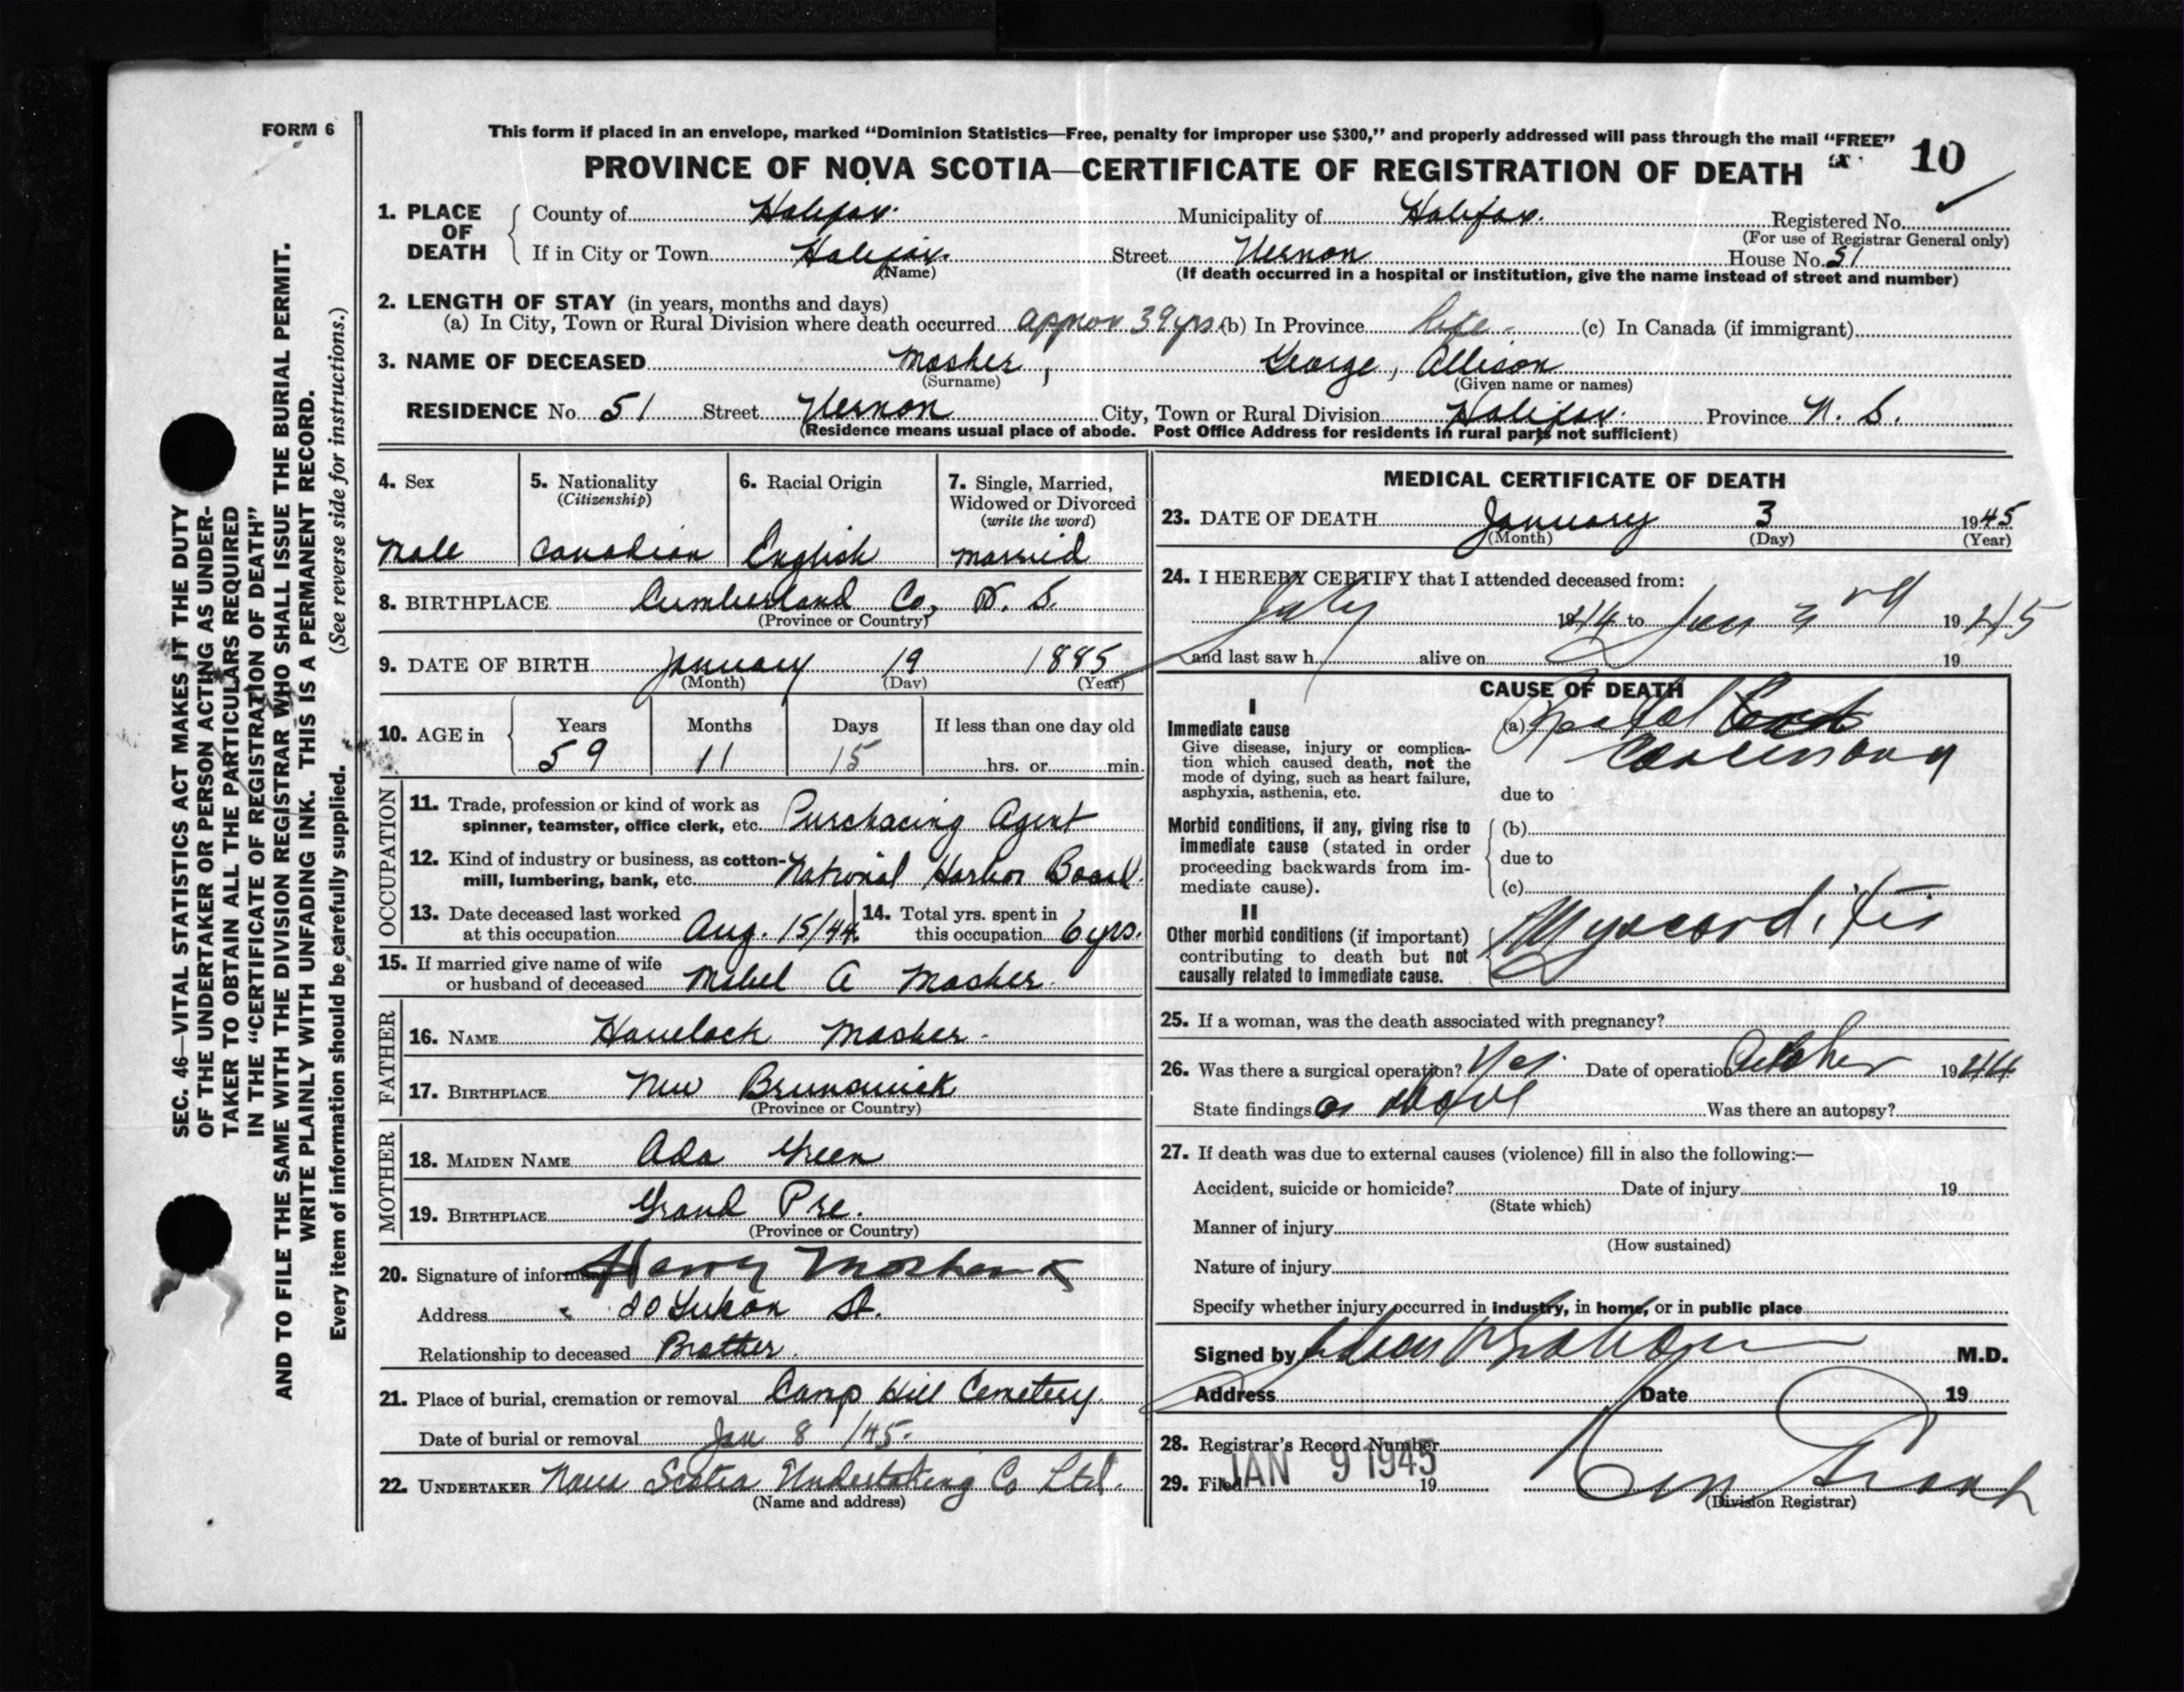 FORM 6
This form if placed in an envelope, marked “Dominion Statistics—Free, penalty for improper use $300,” and properly addressed will pass through the mail “FREE”
PROVINCE OF NOVA SCOTIA—CERTIFICATE OF REGISTRATION OF DEATH 10
1. PLACE OF DEATH
County of Halifax. Municipality of Halifax. Registered No.
(For use of Registrar General only)
If in City or Town Halifax. Street Vernon House No. 51
(Name) (If death occurred in a hospital or institution, give the name instead of street and number)
2. LENGTH OF STAY (in years, months and days)
(a) In City, Town or Rural Division where death occurred approx 39 yrs. (b) In Province life. (c) In Canada (if immigrant)
3. NAME OF DECEASED Mosher, George, Allison
(Surname) (Given name or names)
RESIDENCE No. 51 Street Vernon City, Town or Rural Division Halifax. Province N. S.
(Residence means usual place of abode. Post Office Address for residents in rural parts not sufficient)
4. Sex
Male
5. Nationality
(Citizenship)
Canadian
6. Racial Origin
English
7. Single, Married,
Widowed or Divorced
(write the word)
Married
8. BIRTHPLACE Cumberland Co, N. S.
(Province or Country)
9. DATE OF BIRTH January 19 1885
(Month) (Day) (Year)
10. AGE in
Years Months Days If less than one day old
59 11 15 hrs. or min.
OCCUPATION
11. Trade, profession or kind of work as
spinner, teamster, office clerk, etc. Purchacing Agent
12. Kind of industry or business, as cotton-
mill, lumbering, bank, etc. National Harbor Board.
13. Date deceased last worked
at this occupation Aug. 15/44.
14. Total yrs. spent in
this occupation 6 yrs.
15. If married give name of wife
or husband of deceased Mabel A Mosher.
FATHER
16. NAME Havelock Mosher.
17. BIRTHPLACE New Brunswick
(Province or Country)
MOTHER
18. MAIDEN NAME Ada Green
19. BIRTHPLACE Grand Pre.
(Province or Country)
20. Signature of informant Harry Mosher x
Address 20 Yukon St.
Relationship to deceased Brother.
21. Place of burial, cremation or removal Camp Hill Cemetery.
Date of burial or removal Jan 8 /45.
22. UNDERTAKER Nova Scotia Undertaking Co Ltd.
(Name and address)
MEDICAL CERTIFICATE OF DEATH
23. DATE OF DEATH January 3 1945
(Month) (Day) (Year)
24. I HEREBY CERTIFY that I attended deceased from:
July 1944 to Jan 3rd 1945
and last saw h alive on 19
CAUSE OF DEATH
I
Immediate cause
Give disease, injury or complica-
tion which caused death, not the
mode of dying, such as heart failure,
asphyxia, asthenia, etc.
(a)
due to
Morbid conditions, if any, giving rise to
immediate cause (stated in order
proceeding backwards from im-
mediate cause).
(b)
due to
(c)
II
Other morbid conditions (if important)
contributing to death but not
causally related to immediate cause.
Myocarditis
25. If a woman, was the death associated with pregnancy?
26. Was there a surgical operation? Yes. Date of operation October 1944
State findings as above Was there an autopsy?
27. If death was due to external causes (violence) fill in also the following:—
Accident, suicide or homicide? Date of injury 19
(State which)
Manner of injury
(How sustained)
Nature of injury
Specify whether injury occurred in industry, in home, or in public place
Signed by M.D.
Address Date 19
28. Registrar's Record Number
29. Filed JAN 9 1945 19
(Division Registrar)
SEC. 46—VITAL STATISTICS ACT MAKES IT THE DUTY
OF THE UNDERTAKER OR PERSON ACTING AS UNDER-
TAKER TO OBTAIN ALL THE PARTICULARS REQUIRED
IN THE “CERTIFICATE OF REGISTRATION OF DEATH”
AND TO FILE THE SAME WITH THE DIVISION REGISTRAR WHO SHALL ISSUE THE BURIAL PERMIT.
WRITE PLAINLY WITH UNFADING INK. THIS IS A PERMANENT RECORD.
Every item of information should be carefully supplied. (See reverse side for instructions.)